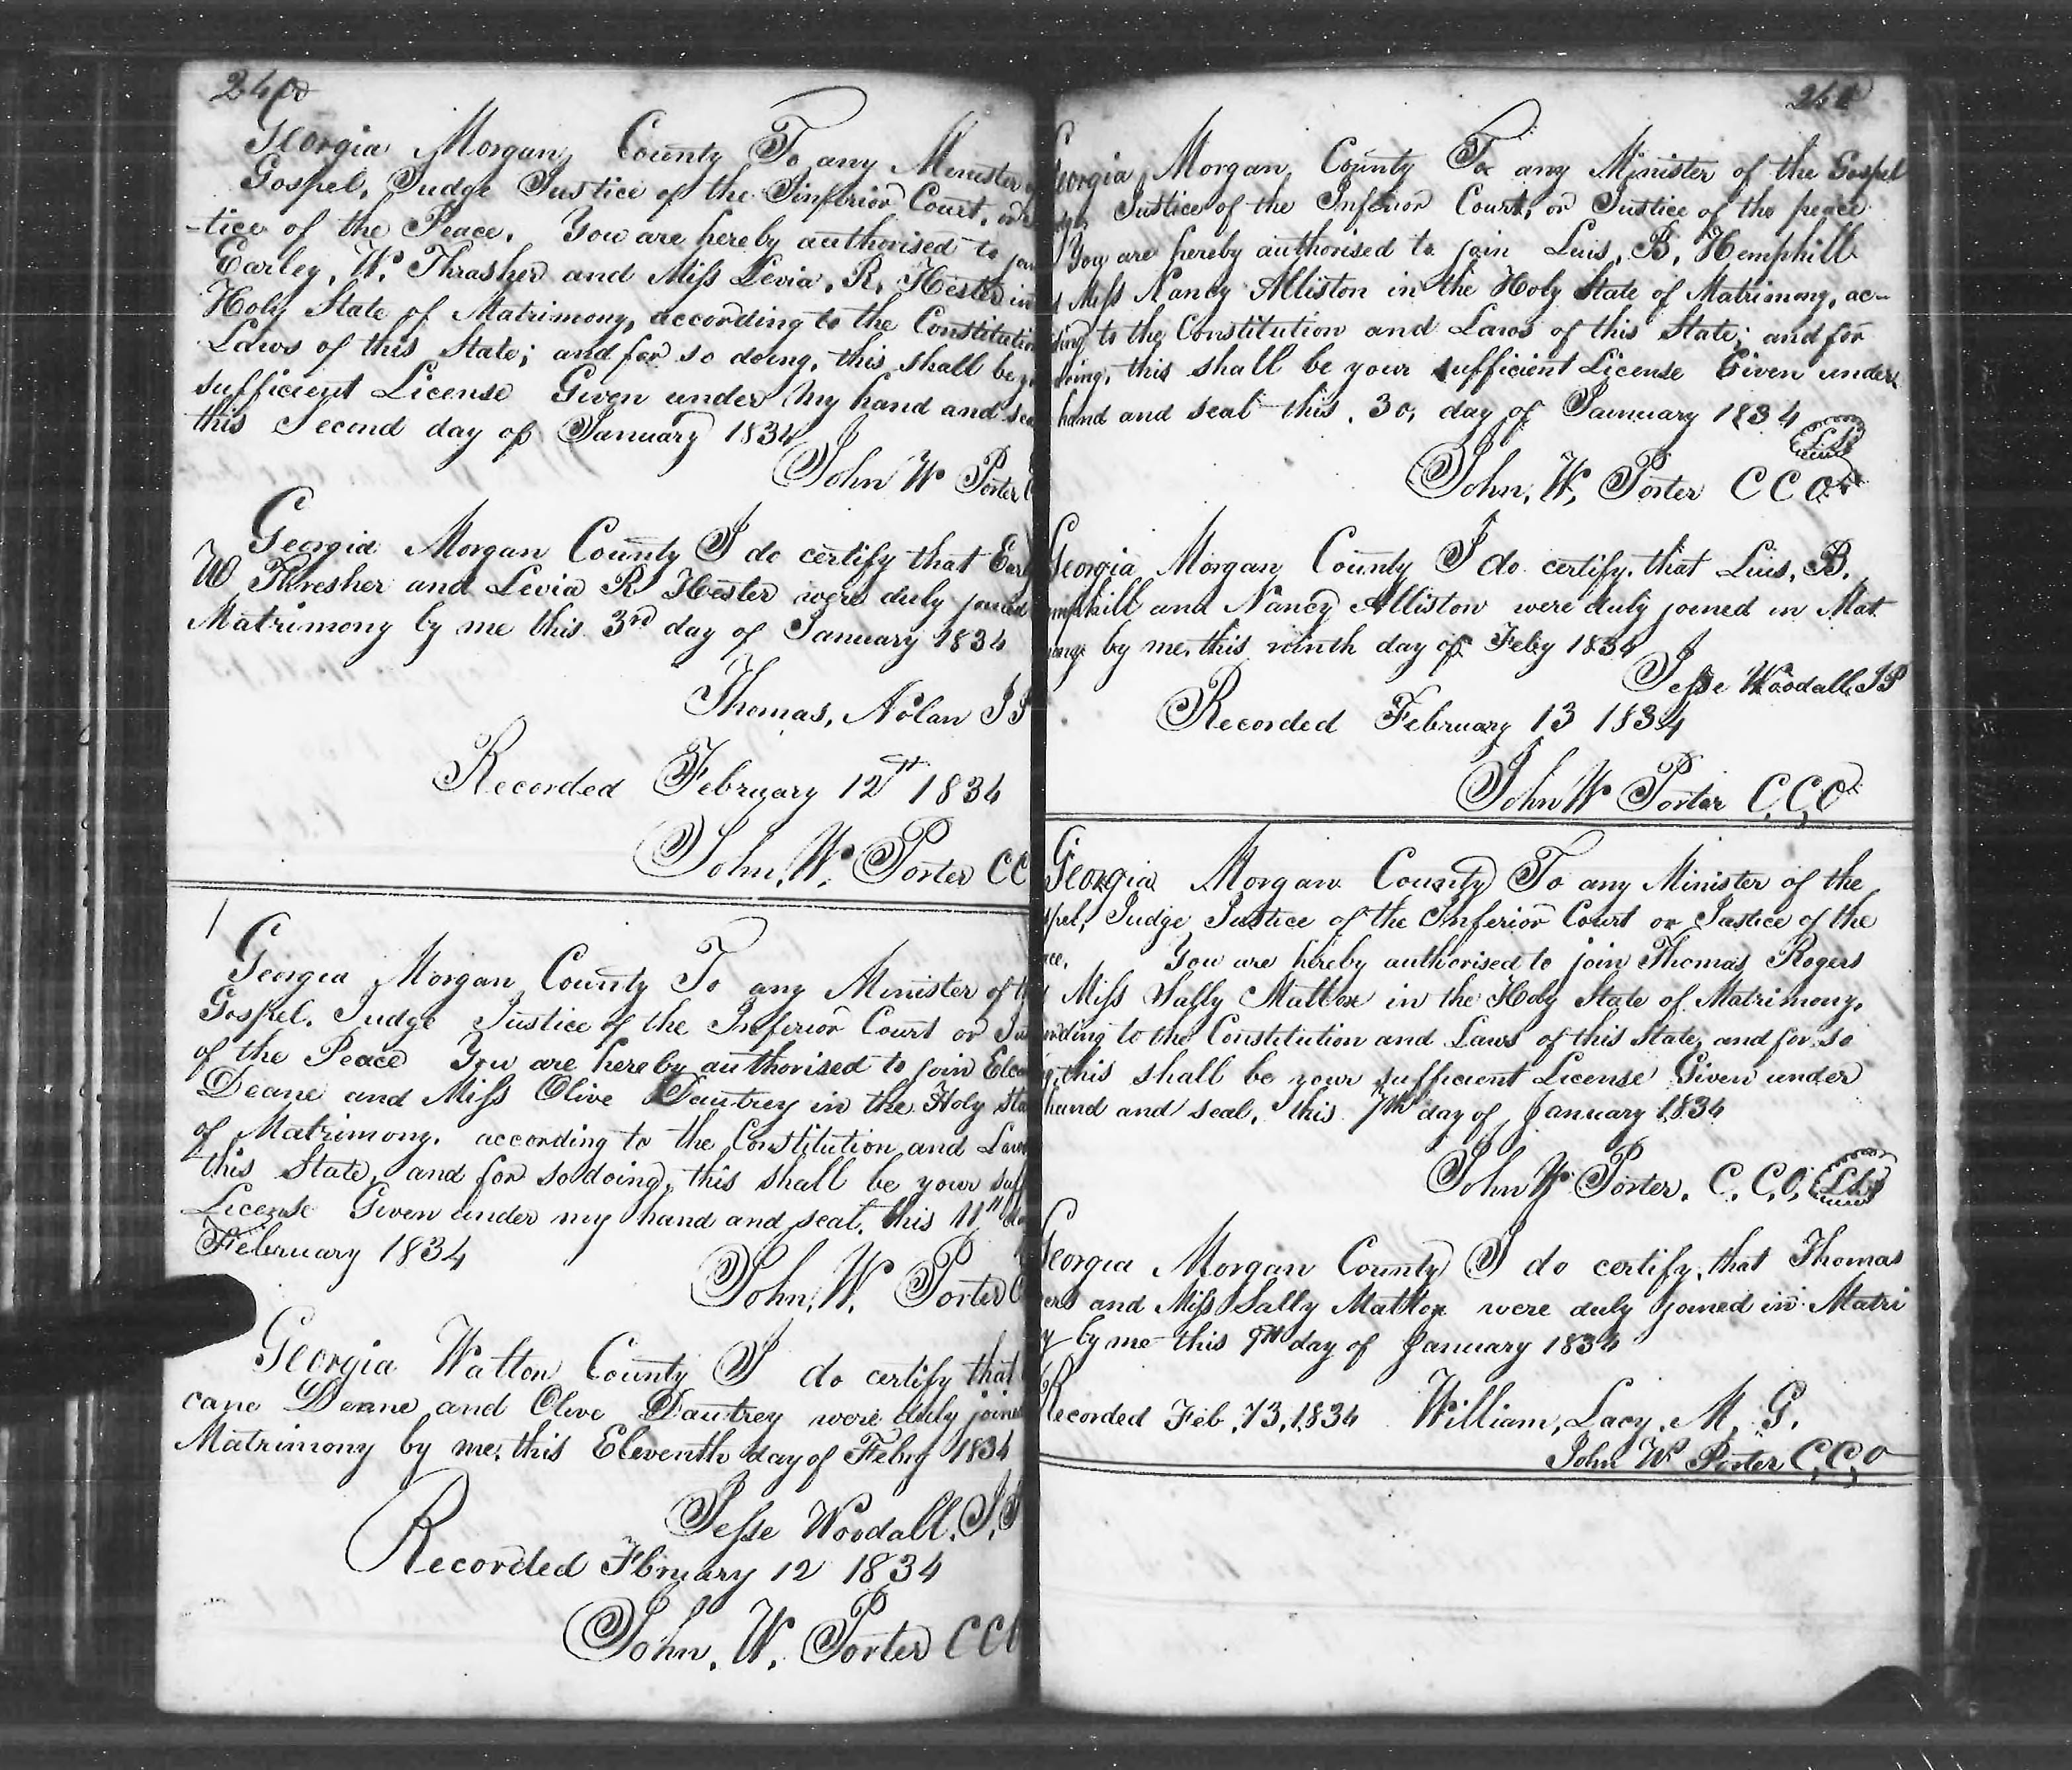 240
Georgia Morgan County To any Minister
Gospel, Judge Justice of the Inferior Court, or
-tice of the Peace. You are hereby authorised to join
Earley, W. Thrasher and Miſs Levia, R, Hester in
Holy State of Matrimony, according to the Constitution
Laws of this State; and for so doing, this shall be
sufficient License Given under My hand and seal
this Second day of January 1834
John W Porter
Georgia Morgan County I do certify that
W Threshер and Levia R Hester were duly joined
Matrimony by me this 3rd day of January 1834
Thomas, Nolan J P
Recorded February 12th 1834
John, W, Porter CC
Georgia Morgan County To any Minister of
Gospel. Judge Justice of the Inferior Court or
of the Peace You are hereby authorised to join
Deane and Miſs Olive Dautrey in the Holy
of Matrimony. according to the Constitution and
this State, and for so doing, this shall be your
License Given under my hand and seal. this 11th
February 1834
John, W. Porter
Georgia Walton County I do certify that
cane Deane and Olive Dautrey were duly joined
Matrimony by me, this Eleventh day of Febry 1834
Jeſse Woodall. J.P
Recorded Fbruary 12 1834
John, W. Porter CC
Georgia Morgan County To any Minister of the Gospel
Justice of the Inferior Court, or Justice of the peace
You are hereby authorised to join Luis, B, Hemphill
Miſs Nancy Alliston in the Holy State of Matrimony, ac-
ding to the Constitution and Laws of this State; and for
doing, this shall be your sufficient License Given under
hand and seal this, 30, day of January 1834
LS
John, W, Porter C C O
Georgia Morgan County I do certify, that Luis, B.
mphill and Nancy Alliston were duly joined in Mat
by me, this ninth day of Feby 1834
Jeſse Woodall, JP
Recorded February 13 1834
John W Porter C,C,O
Georgia Morgan County To any Minister of the
spel, Judge Justice of the Inferior Court or Justice of the
ace, You are hereby authorised to join Thomas Rogers
Miſs Sally Mattox in the Holy State of Matrimony,
ording to the Constitution and Laws of this State, and for so
g, this shall be your sufficient License Given under
hand and seal, this 7th day of January 1834
John W Porter. C. C. O, LS
Georgia Morgan County I do certify, that Thomas
ers and Miſs Sally Mattox were duly joined in Matri
y by me this 9th day of January 1834
Recorded Feb, 13, 1834 William, Lacy, M, G.
John W Porter C,C,O